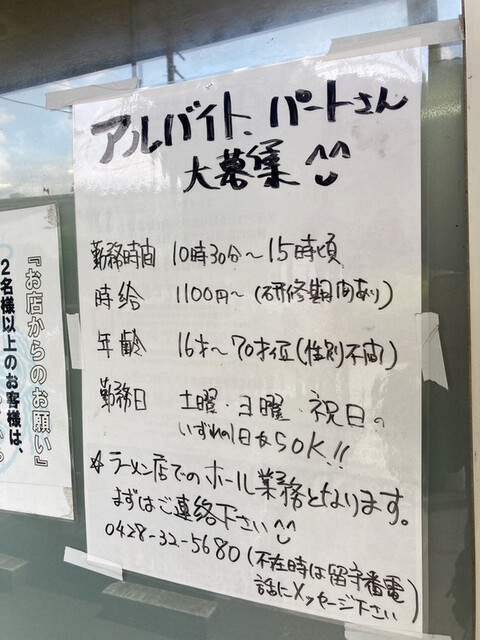 アルバイト、パートさん
大募集 ^^
勤務時間 10時30分～15時頃
時給 1100円～(研修期間あり)
年齢 16才～70才位(性別不問)
勤務日 土曜・日曜・祝日の
いずれの1日でもOK!!
☆ラーメン店でのホール業務となります。
まずはご連絡下さい^^
0428-32-5680(不在時は留守番電
話にメッセージ下さい)
『お店からのお願い』
2名様以上のお客様は、